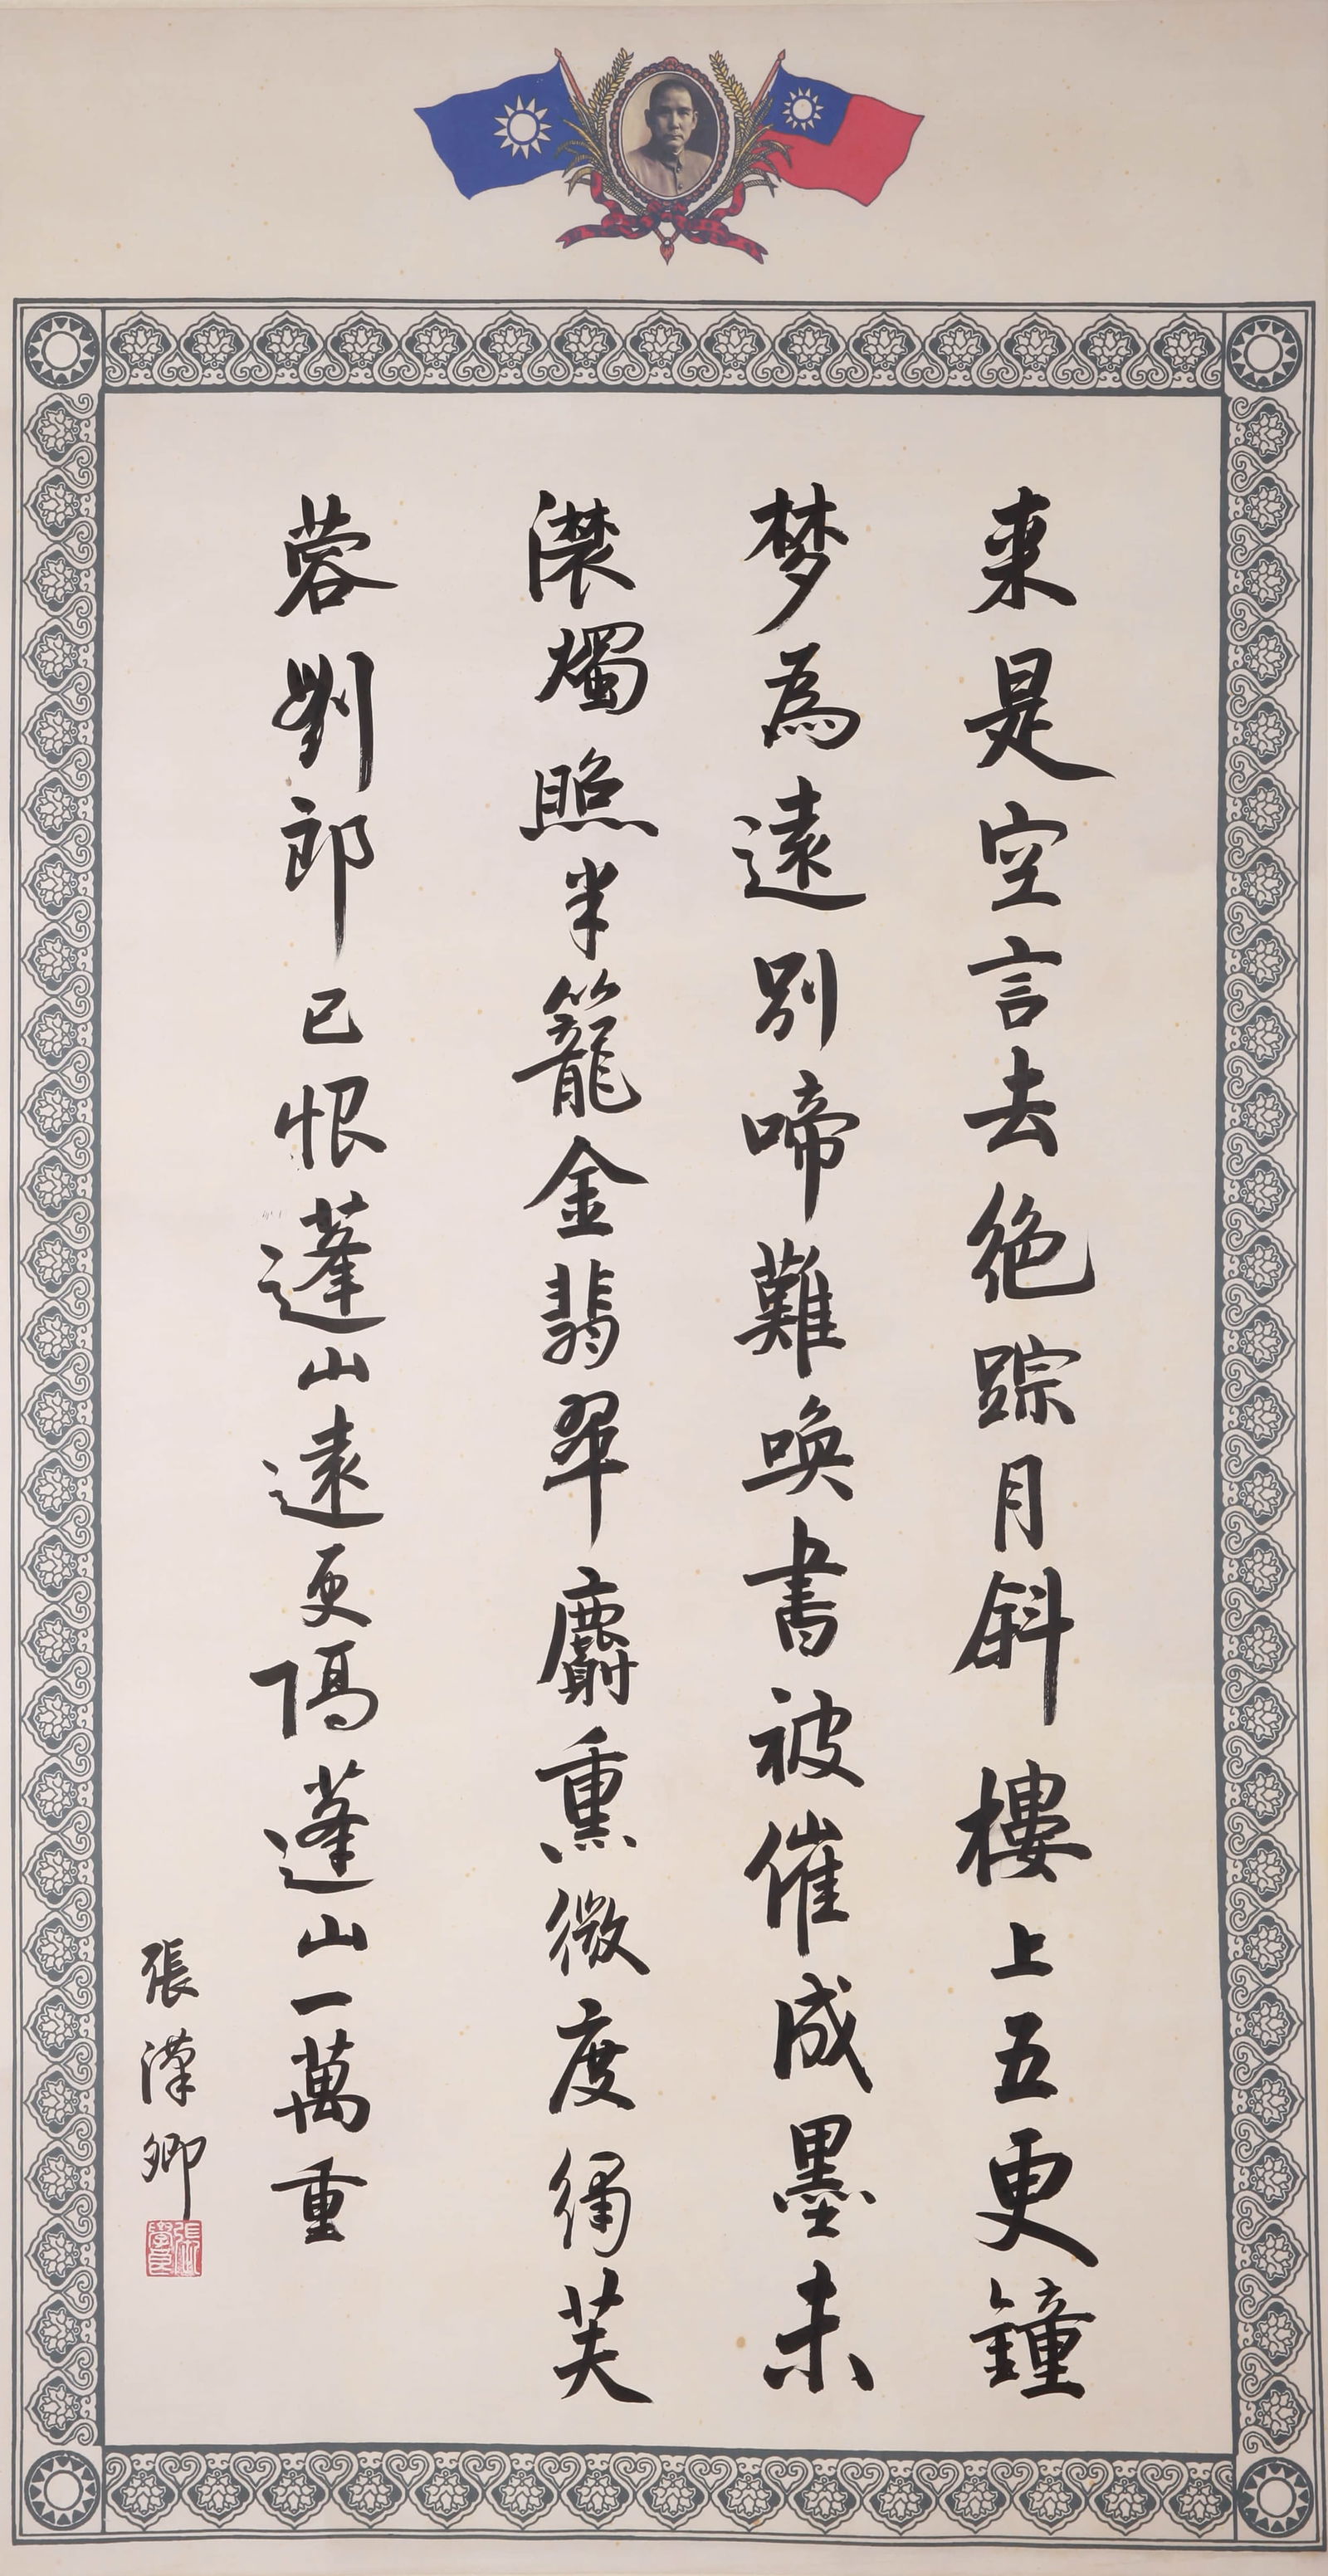 来是空言去絕踪月斜樓上五更鐘
梦為遠別啼難喚書被催成墨未
濃燭照半籠金翡翠麝熏微度繡芙
蓉劉郎已恨蓬山遠更隔蓬山一萬重
張漢卿
張學良